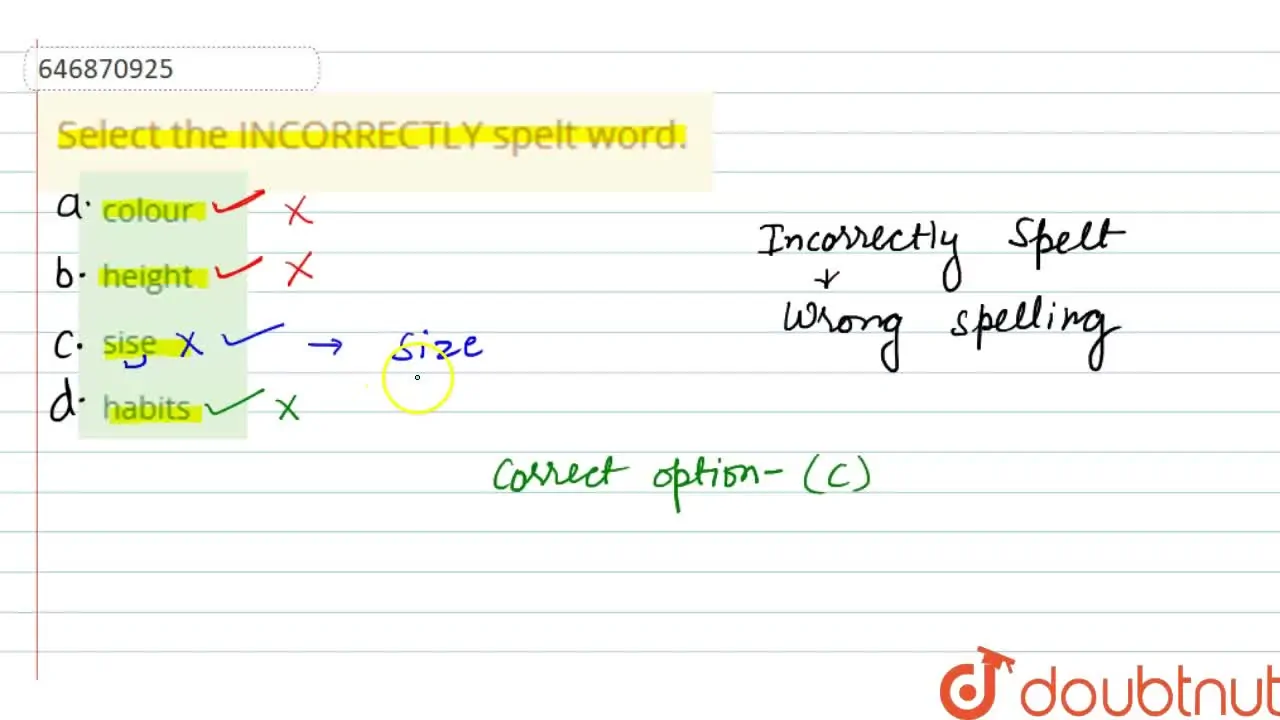 646870925
Select the INCORRECTLY spelt word.
a. colour ✓ X
b. height ✓ X
c. sise X ✓ → size
d. habits ✓ X
Incorrectly Spelt
↓
Wrong spelling
Correct option- (C)
doubtnut